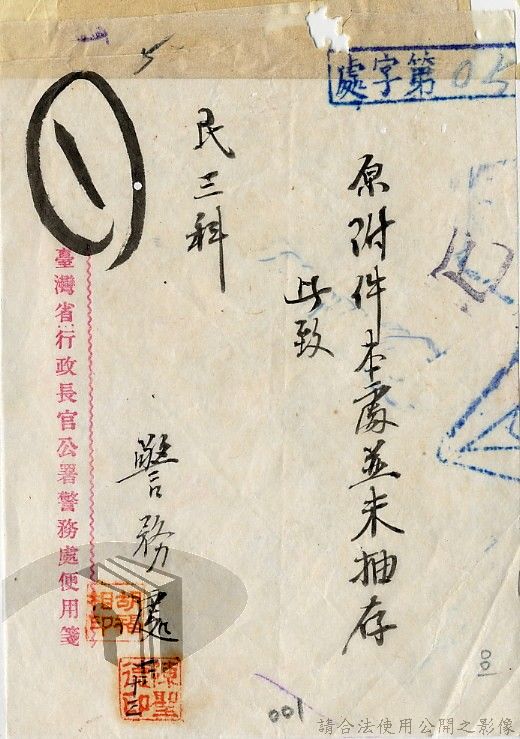 處字第05
原附件本處並未抽存
此致
民三科
警務處
十二
臺灣省行政長官公署警務處使用箋
001
請合法使用公開之影像